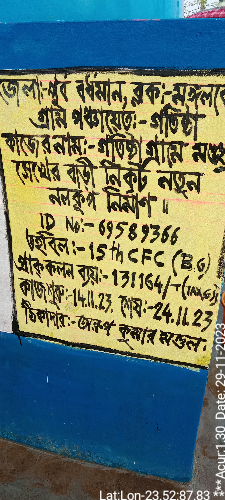 জেলা-পূর্ব বর্ধমান, ব্লক:- মঙ্গলকো
গ্রাম পঞ্চায়েত:- গতিষ্ঠা
কাজের নাম:- গতিষ্ঠা গ্রামে
সেখের বাড়ী নিকট নতুন
নলকূপ নির্মাণ ॥
ID No:- 69589366
তহবিল:- 15th CFC (B.G)
প্রাক্কলন ব্যয়:- 131164/-
কাজ শুরু:- 14.11.23, শেষ:- 24.11.23
ঠিকাদার:- কুমার মণ্ডল.
Lat:Lon-23.52:87.83
***Acur:1.30 Date: 29-11-2023